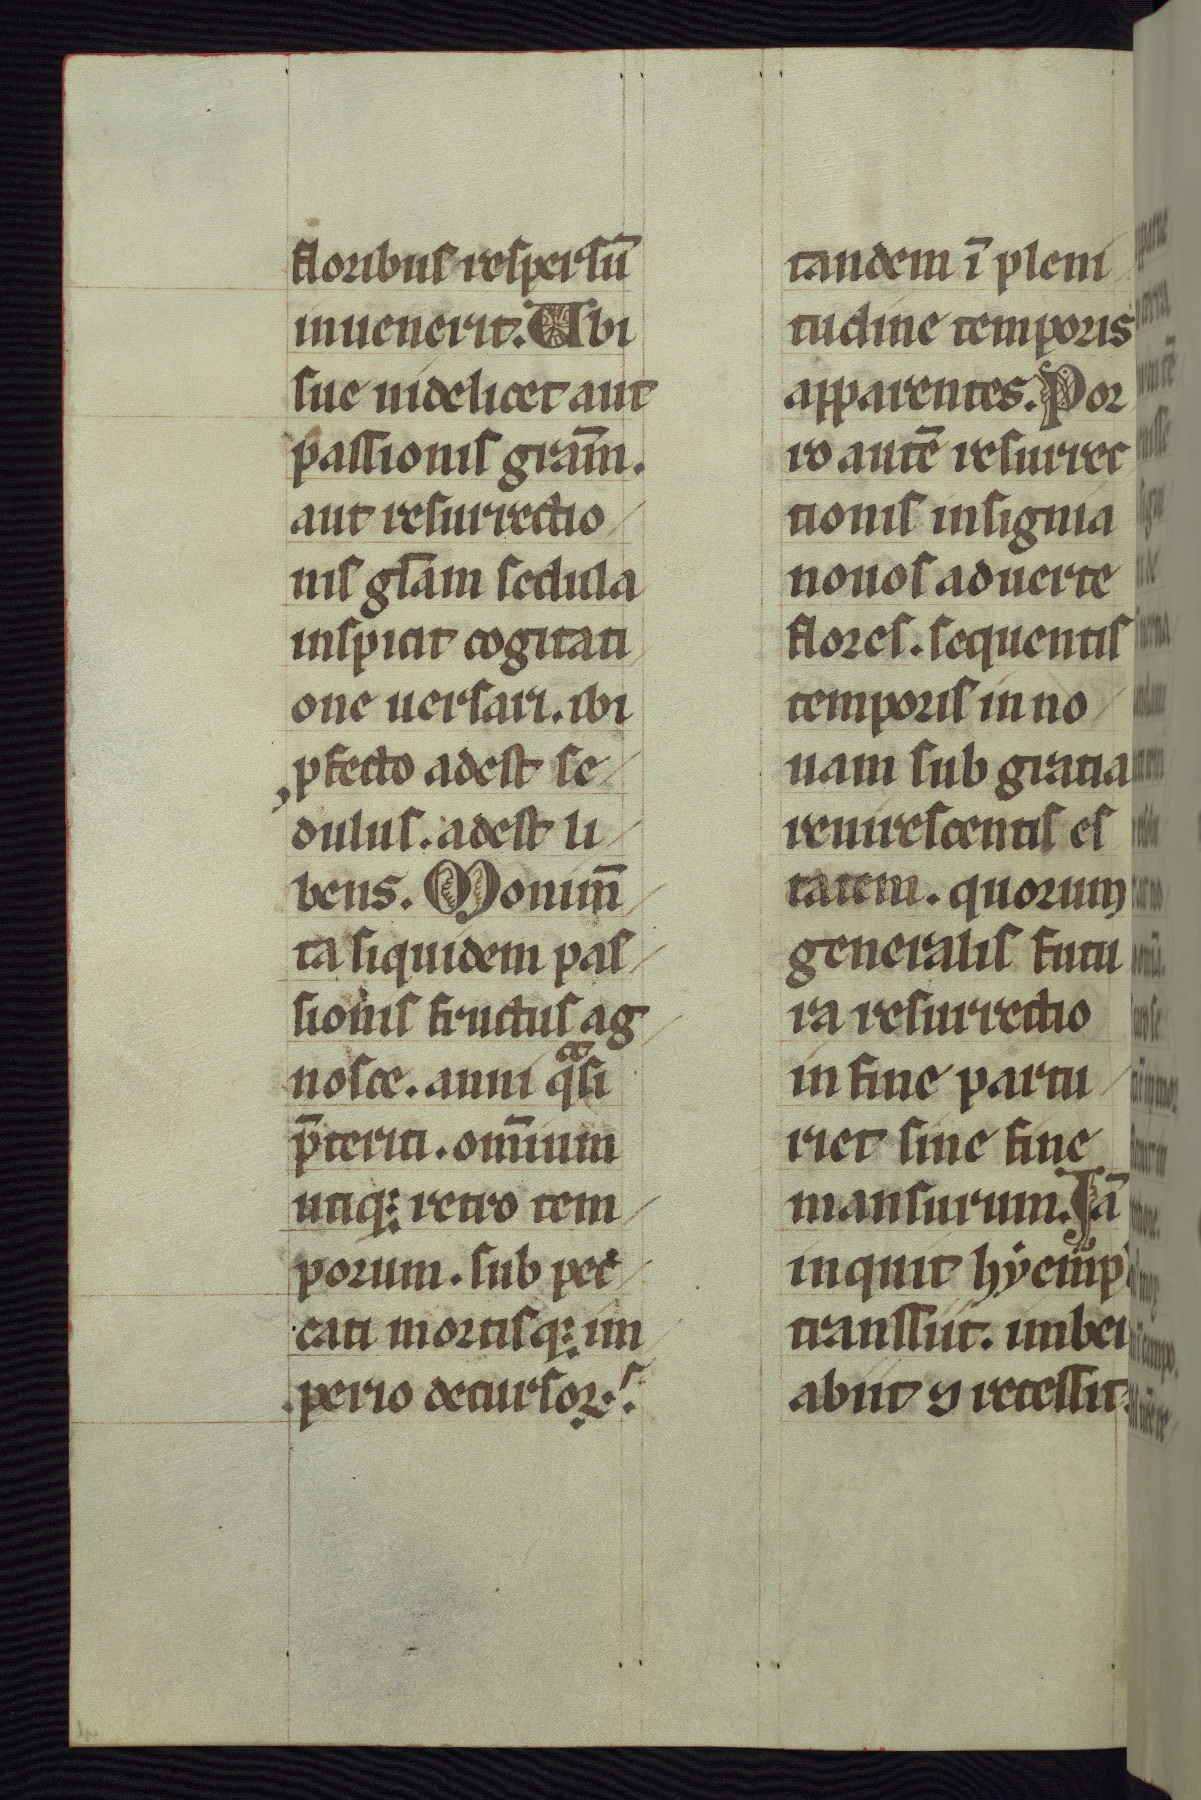 floribus respersū
inuenerit. Vbi
sue uidelicet aut
passionis grām.
aut resurrectio
nis glām sedula
inspicit cogitati
one uersari. ibi
pfecto adest se
dulus. adest li
bens. Monimn̄
ta siquidem pas
sionis fructus ag
nosce. anni qͣsi
p̄teriti. om̄ium
utiqꝫ retro tem
porum. sub pec
cati mortisqꝫ im
perio decursoꝝ.
tandem ī pleni
tudine temporis
apparentes. Por
ro autē resurrec
tionis insignia
nouos aduerte
flores. sequentis
temporis in no
uam sub gratia
reuirescentis es
tatem. quorum
generalis futu
ra resurrectio
in fine partu
riet sine fine
mansurum. Iā
inquit hyemp̄s
transsiit. imber
abiit ⁊ recessit.